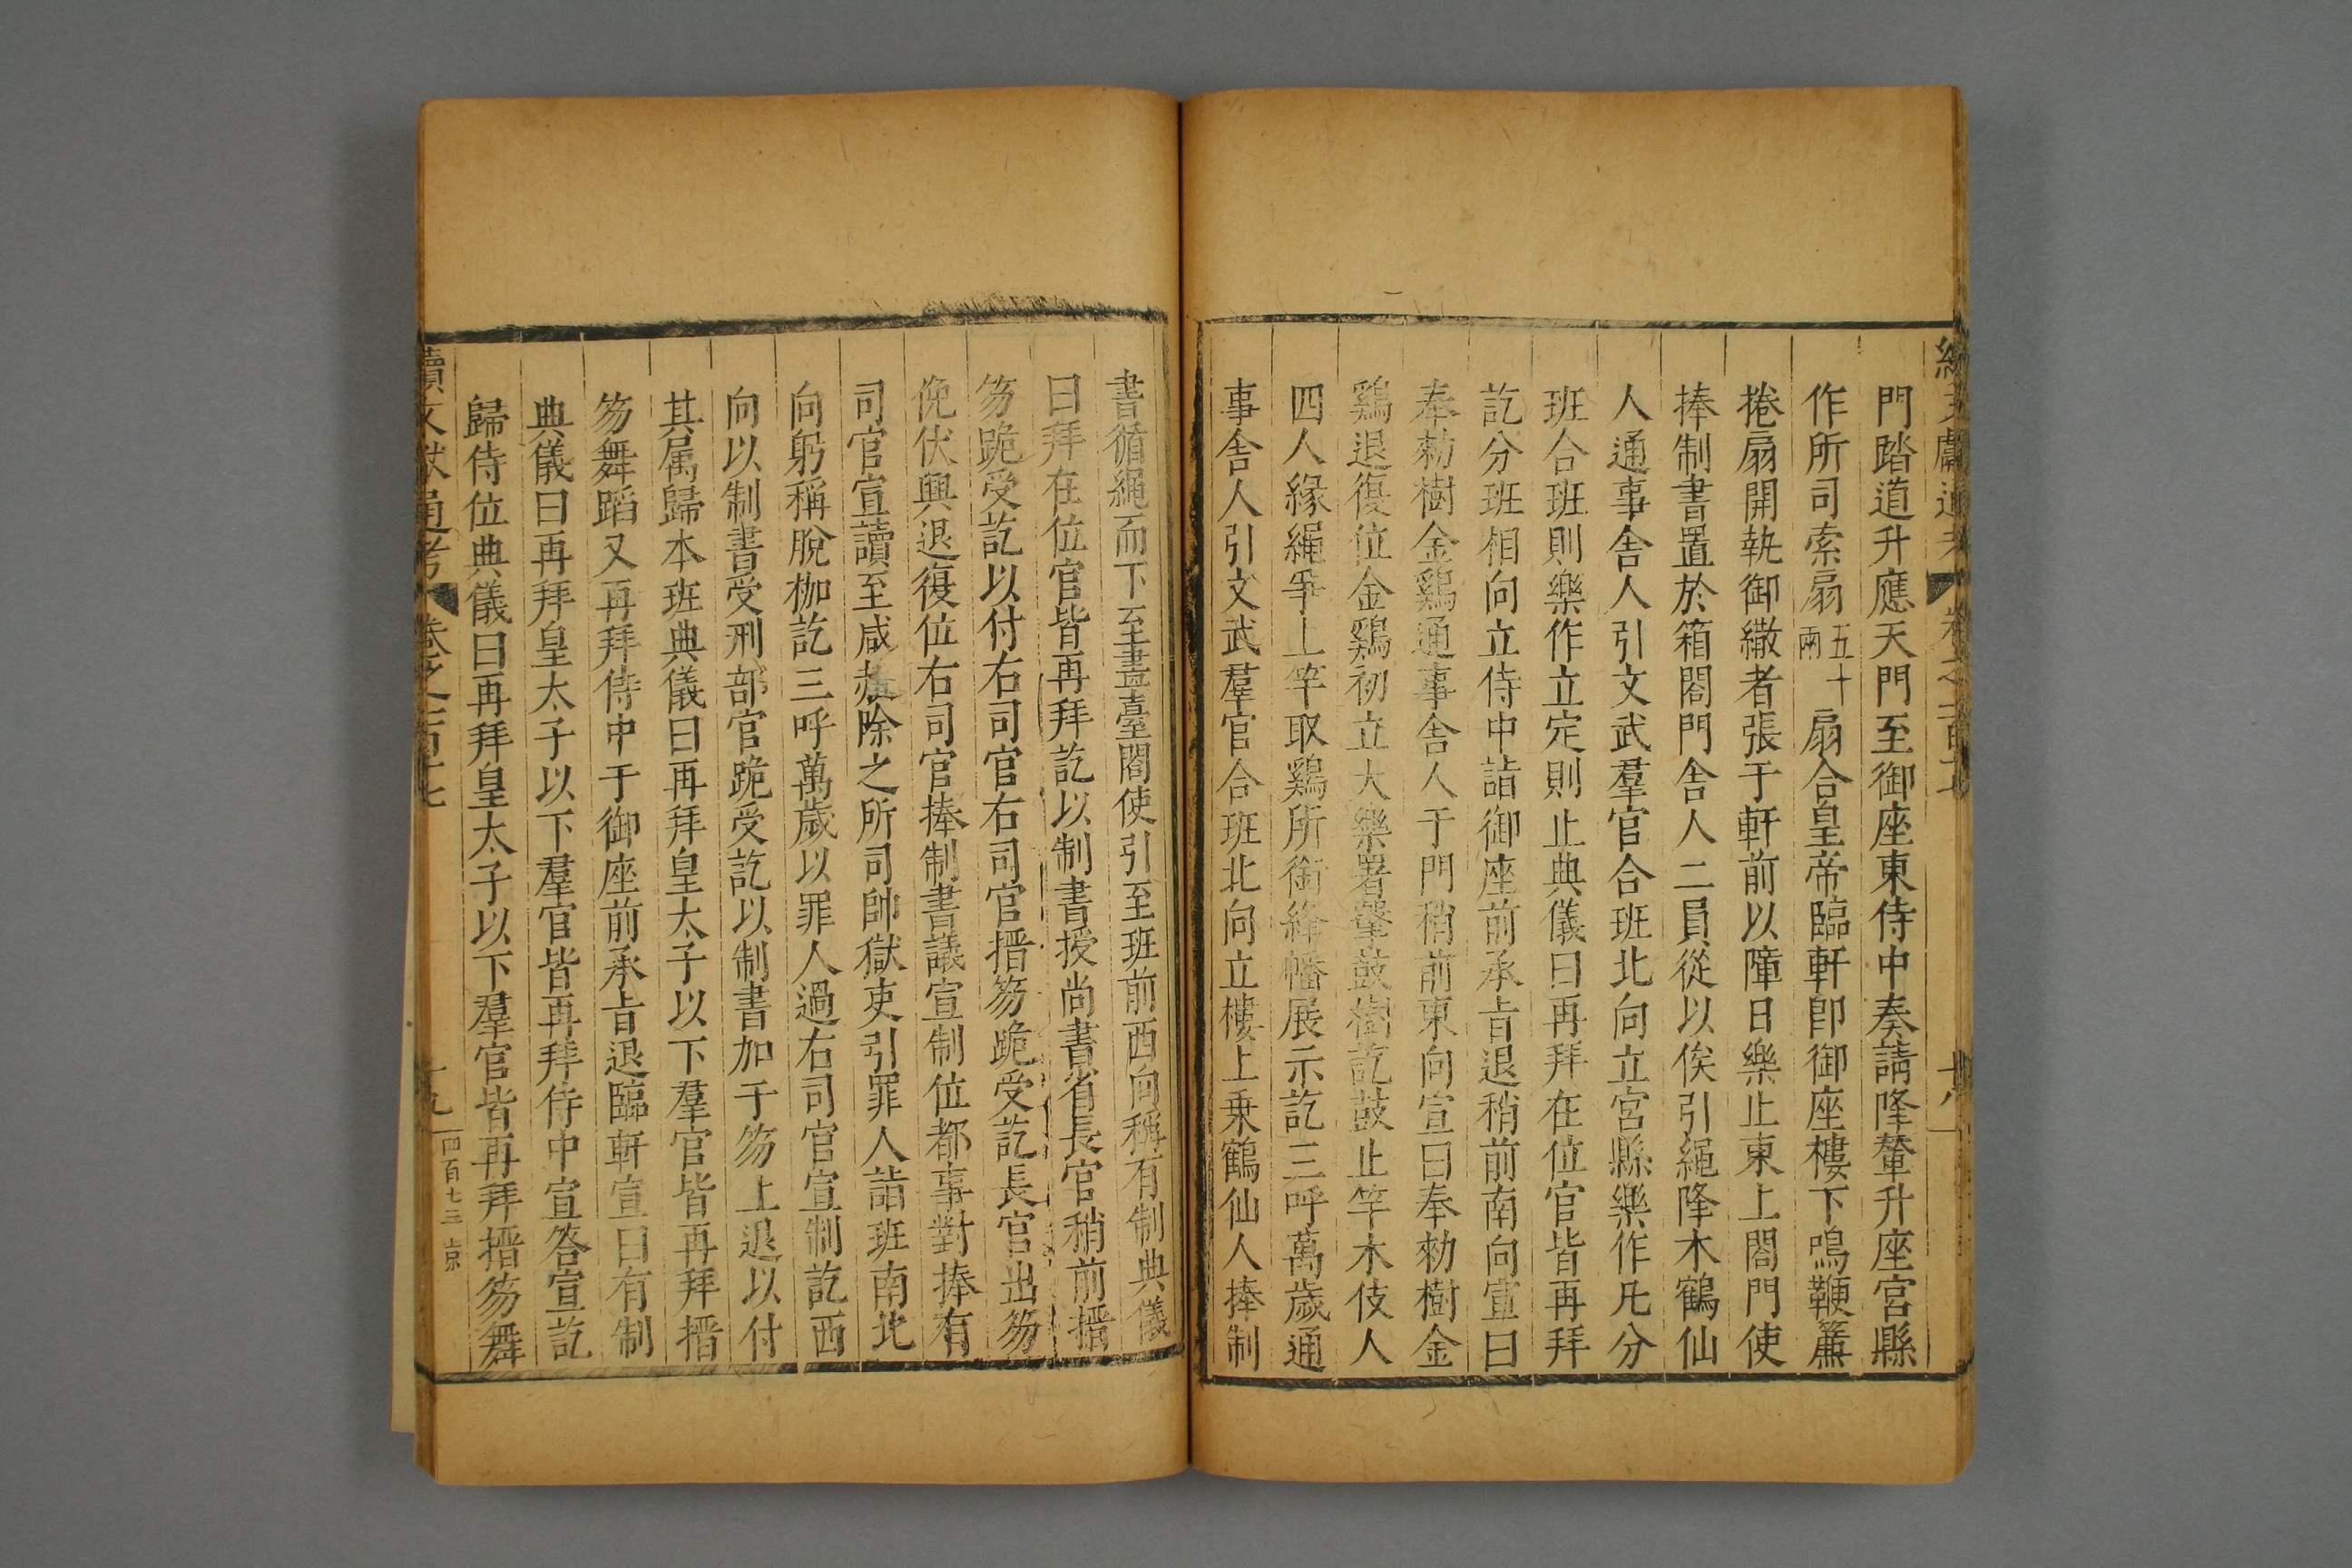 門踏道升應天門至御座東侍中奏請降輦升座宮縣
作所司索扇五十兩扇合皇帝臨軒卽御座樓下鳴鞭簾
捲扇開執御繖者張于軒前以障日樂止東上閤門使
捧制書置於箱閤門舍人二員從以俟引繩降木鶴仙
人通事舍人引文武羣官合班北向立宮縣樂作凡分
班合班則樂作立定則止典儀曰再拜在位官皆再拜
訖分班相向立侍中詣御座前承旨退稍前南向宣曰
奉勑樹金鷄通事舍人于門稍前東向宣曰奉勑樹金
鷄退復位金鷄初立大樂署擊鼓樹訖鼓止竿木伎人
四人緣繩爭上竿取鷄所銜絳幡展示訖三呼萬歲通
事舍人引文武羣官合班北向立樓上乗鶴仙人捧制
書循繩而下至畫臺閤使引至班前西向稱有制典儀
曰拜在位官皆再拜訖以制書授尚書省長官稍前搢
笏跪受訖以付右司官右司官搢笏跪受訖長官出笏
俛伏興退復位右司官捧制書議宣制位都事對捧有
司官宣讀至咸赦除之所司帥獄吏引罪人詣班南北
向躬稱脫枷訖三呼萬歲以罪人過右司官宣制訖西
向以制書受刑部官跪受訖以制書加于笏上退以付
其属歸本班典儀曰再拜皇太子以下羣官皆再拜搢
笏舞蹈又再拜侍中于御座前承旨退臨軒宣曰有制
典儀曰再拜皇太子以下羣官皆再拜侍中宣答宣訖
歸侍位典儀曰再拜皇太子以下羣官皆再拜搢笏舞
續文献通考 卷之一百七 十九 四百七三 京